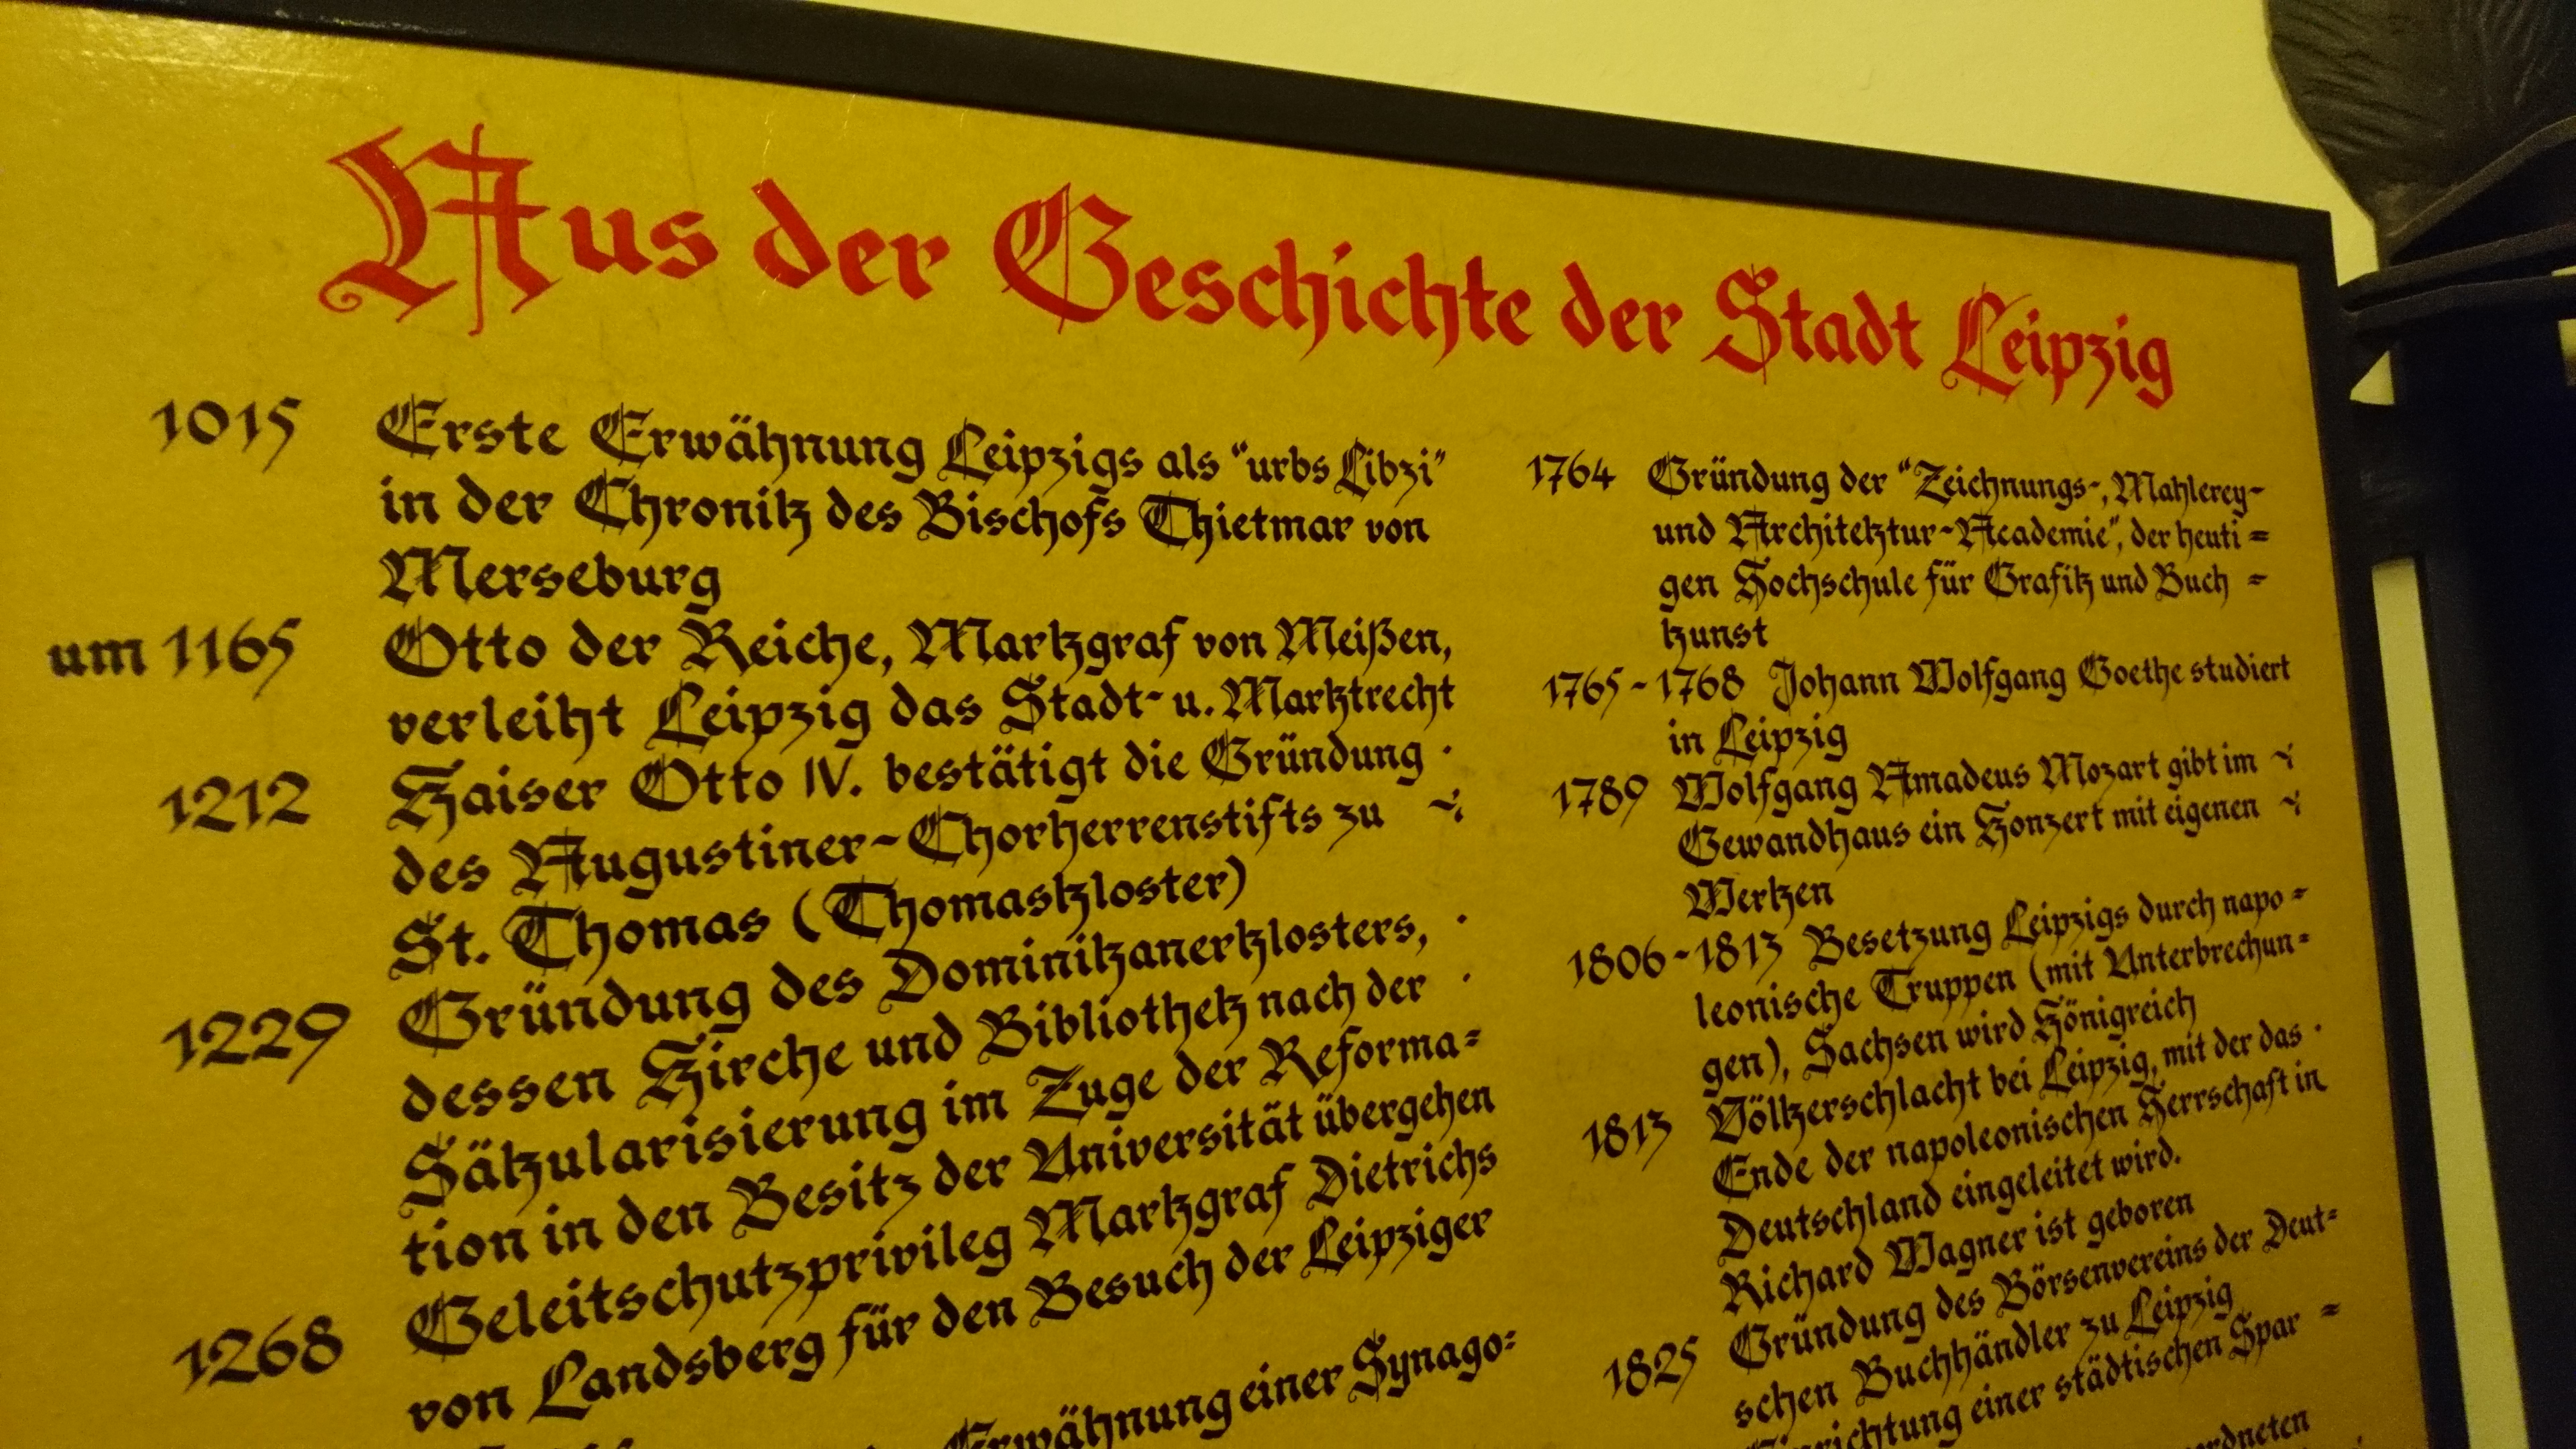 Aus der Geschichte der Stadt Leipzig
1015 Erste Erwähnung Leipzigs als "urbs Libzi"
in der Chronik des Bischofs Thietmar von
Merseburg
um 1165 Otto der Reiche, Markgraf von Meißen,
verleiht Leipzig das Stadt- u. Marktrecht
1212 Kaiser Otto IV. bestätigt die Gründung
des Augustiner-Chorherrenstifts zu
St. Thomas (Thomaskloster)
1229 Gründung des Dominikanerklosters,
dessen Kirche und Bibliothek nach der
Säkularisierung im Zuge der Reforma=
tion in den Besitz der Universität übergehen
1268 Geleitschutzprivileg Markgraf Dietrichs
von Landsberg für den Besuch der Leipziger
Erwähnung einer Synago=
1764 Gründung der "Zeichnungs-, Mahlerey-
und Architektur-Academie", der heuti=
gen Hochschule für Grafik und Buch=
kunst
1765-1768 Johann Wolfgang Goethe studiert
in Leipzig
1789 Wolfgang Amadeus Mozart gibt im
Gewandhaus ein Konzert mit eigenen
Werken
1806-1813 Besetzung Leipzigs durch napo=
leonische Truppen (mit Unterbrechun=
gen), Sachsen wird Königreich
1813 Völkerschlacht bei Leipzig, mit der das
Ende der napoleonischen Herrschaft in
Deutschland eingeleitet wird.
Richard Wagner ist geboren
1825 Gründung des Börsenvereins der Deut=
schen Buchhändler zu Leipzig
einer städtischen Spar=